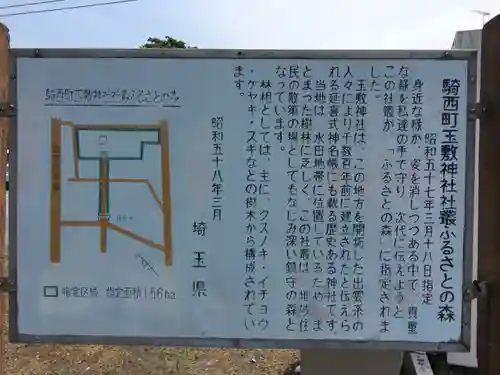 騎西町玉敷神社社叢ふるさとの森
昭和五十七年三月十八日指定
身近な緑が、姿を消しつつある中で、貴重
な緑を私達の手で守り、次代に伝えようと
この社叢が、「ふるさとの森」に指定されま
した。
玉敷神社は、この地方を開拓した出雲系の
人々により千数百年前に建立されたと伝えら
れる延喜式神名帳にも載る歴史ある神社です。
当地は、水田地帯に位置しているため、ま
とまった樹林に乏しく、この社叢は、地域住
民の散策の場としてもなじみ深い鎮守の森と
なっています。
林相としては、主に、クスノキ・イチョウ
・ケヤキ・スギなどの樹木から構成されてい
ます。
昭和五十八年三月
埼玉県
騎西町玉敷神社社叢ふるさとの森
指定区域 指定面積1.56ha